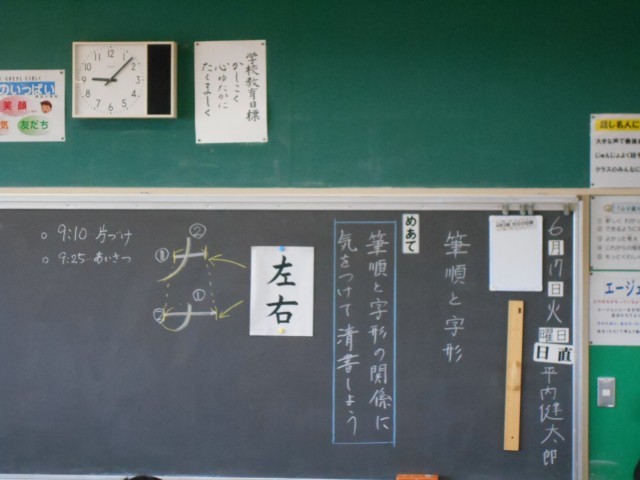 のいっぱい
笑顔
気
友だち
12
1
2
3
4
5
6
7
8
9
10
11
学校教育目標
かしこく
心ゆたかに
たくましく
話し名人に
大きな声で最後
じゅんじょよく話
クラスのみんなに
エージェ
6月17日火曜日
日直 平内健太郎
筆順と字形
めあて
筆順と字形の関係に
気をつけて清書しよう
左右
②
①
①
②
○ 9:10 片づけ
○ 9:25 あいさつ